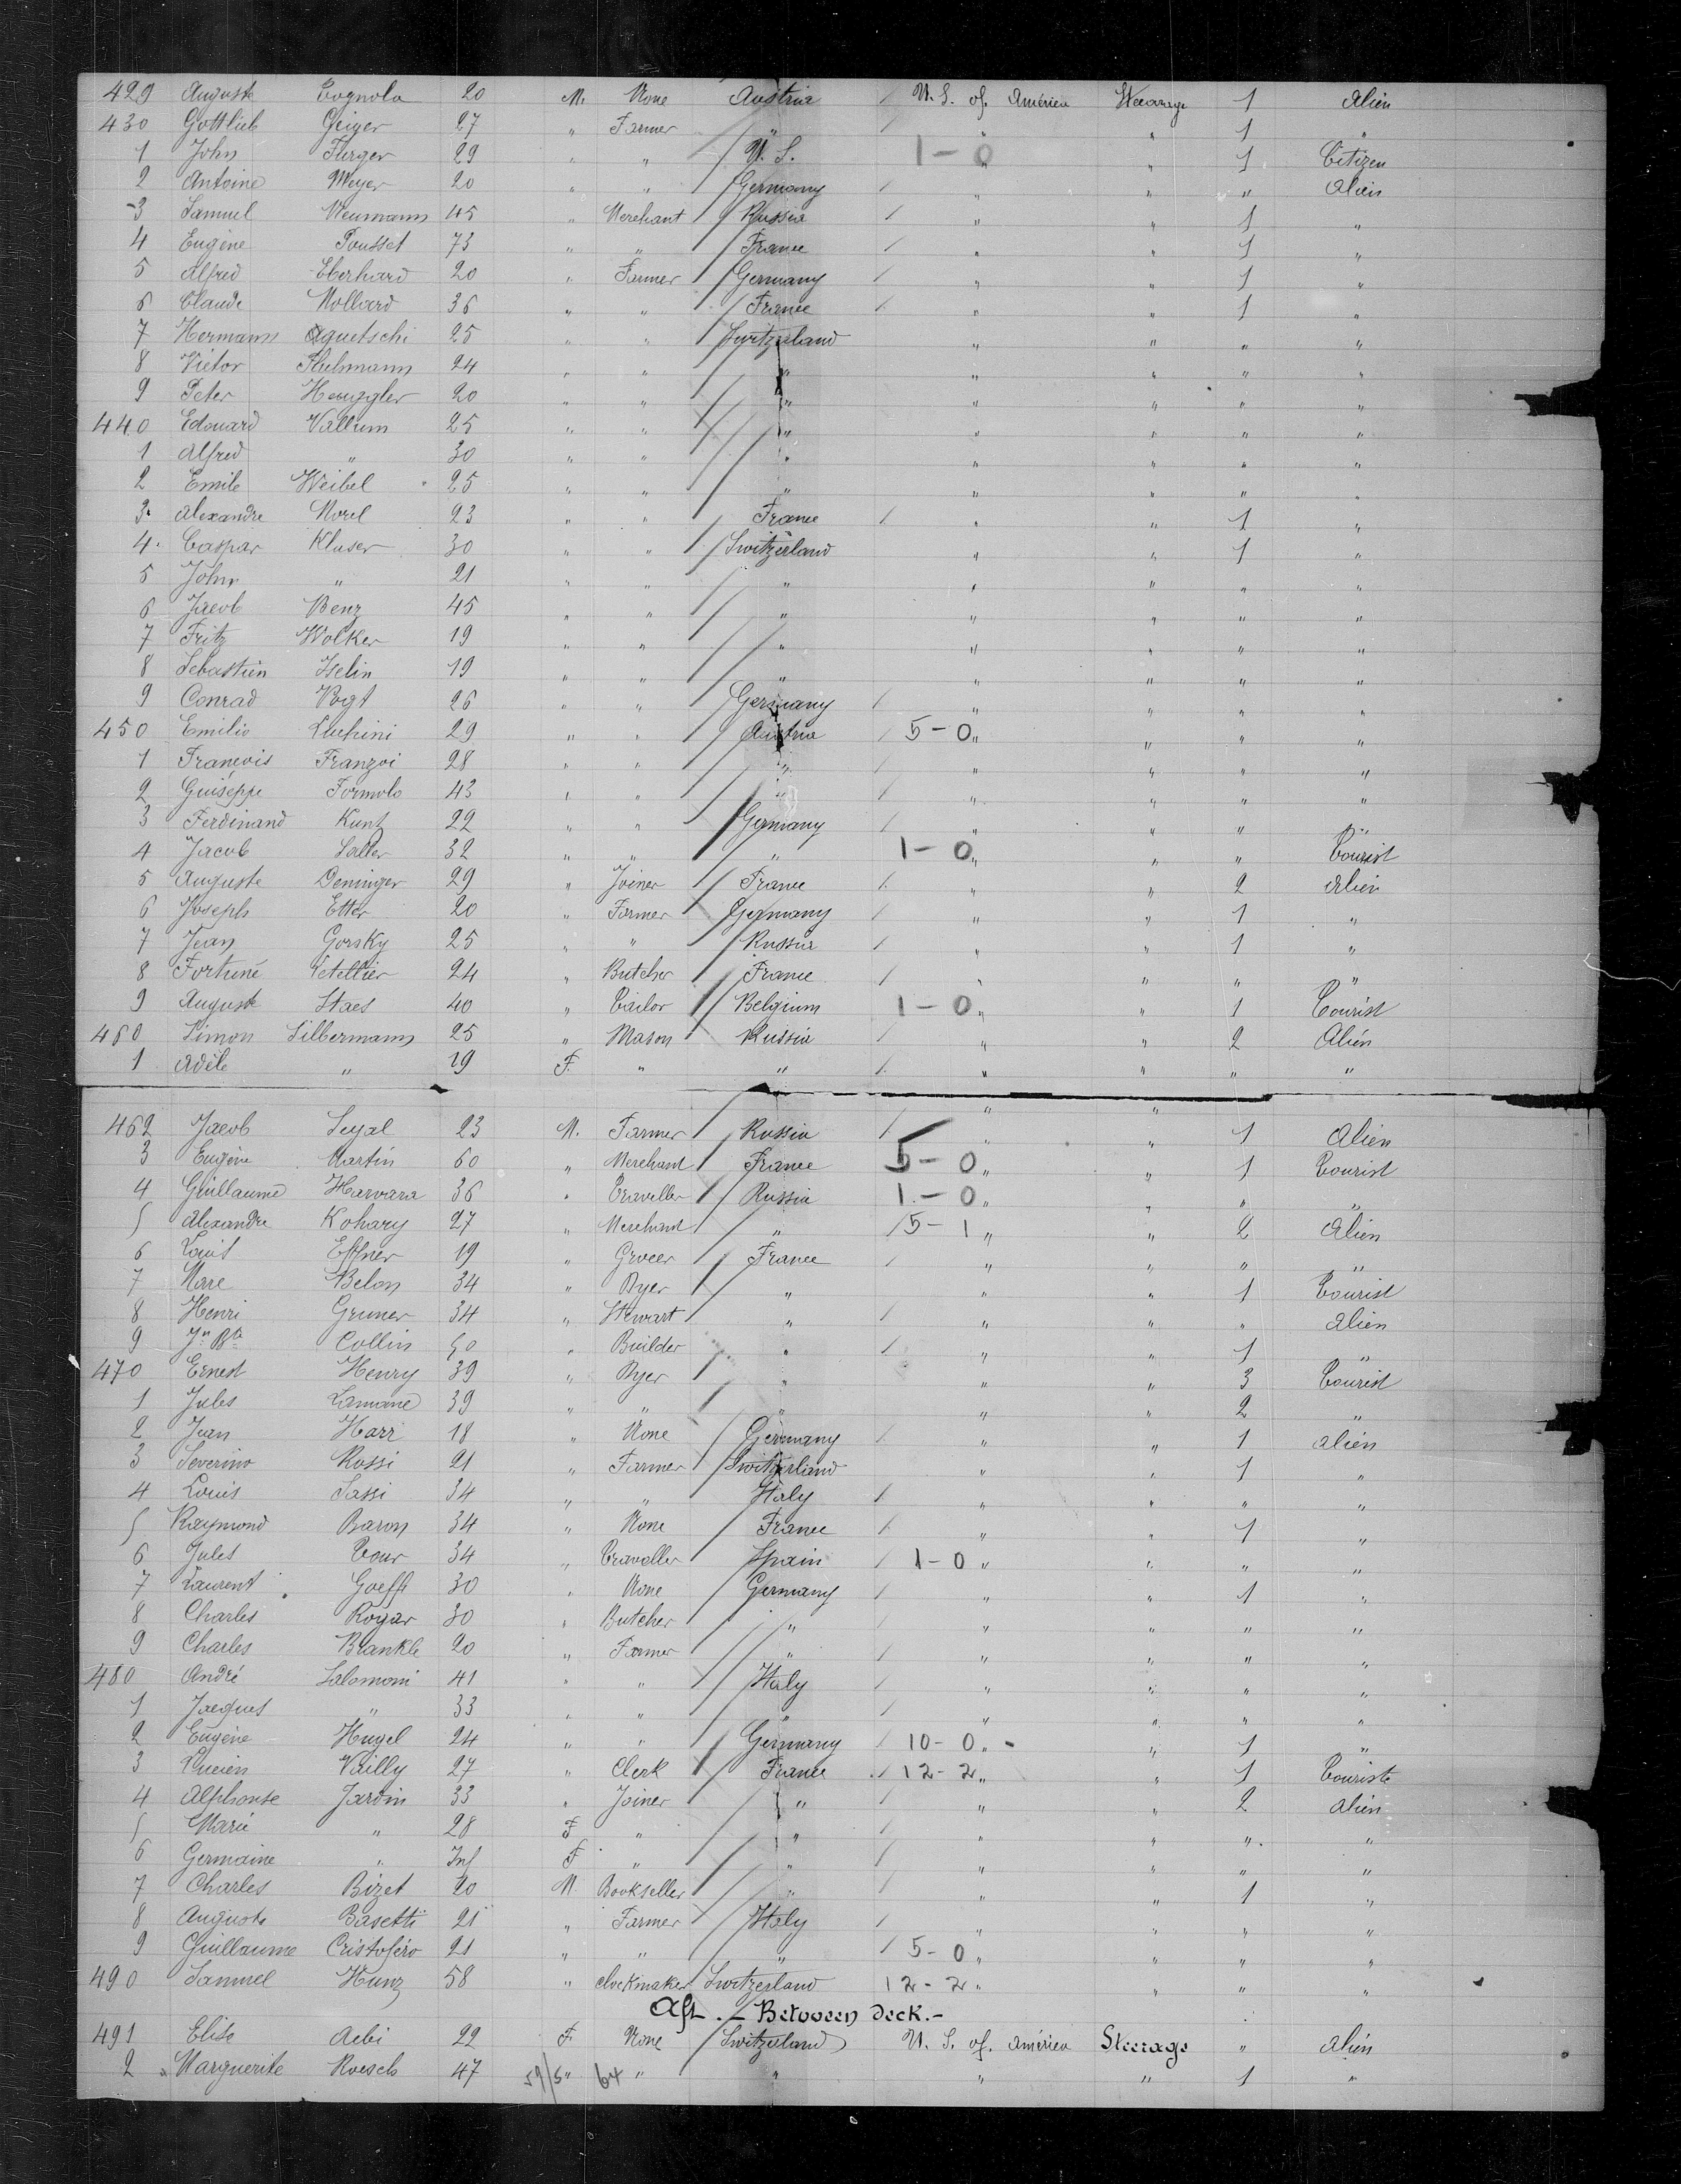 429 Auguste Cognola 20 M. None Austria / U. S. of. América Steerage 1 Alien
430 Gottlieb Geiger 27 " Farmer " / " " 1 "
1 John Furger 29 " " U. S. 1-0 " " 1 Citizen
2 Antoine Meyer 20 " " Germany / " " " Alien
3 Samuel Neumann 45 " Merchant Russia / " " 1 "
4 Eugène Pousset 73 " " France / " " 1 "
5 Alfred Eberhard 20 " Farmer Germany / " " 1 "
6 Claude Mollard 36 " " France / " " 1 "
7 Hermann Aguetschi 25 " " Switzerland " " " "
8 Victor 24 " " " " " " "
9 Peter Heuggler 20 " " " " " " "
440 Edouard Vallum 25 " " " " " " "
1 Alfred " 30 " " " " " " "
2 Emile Weibel 25 " " " " " " "
3 Alexandre Morel 23 " " France / " " 1 "
4 Caspar Kluser 30 " " Switzerland " " 1 "
5 John " 21 " " " " " " "
6 Jacob Benz 45 " " " " " " "
7 Fritz Wolker 19 " " " " " " "
8 Sebastien Iselin 19 " " " " " " "
9 Conrad Vogt 26 " " Germany / " " " "
450 Emilio 29 " " Austria / 5-0 " " " "
1 Francois Franzoi 28 " " " / " " " "
2 Guiseppe Formolo 43 " " " / " " " "
3 Ferdinand Kuntz 22 " " Germany / " " " "
4 Jacob Saller 32 " " " 1-0 " " " Tourist
5 Auguste Deninger 29 " Joiner France / " " 2 Alien
6 Joseph Etter 20 " Farmer Germany / " " 1 "
7 Jean Gorsky 25 " " Russia / " " 1 "
8 Fortuné Letellier 24 " Butcher France / " " " "
9 Auguste Staes 40 " Tailor Belgium 1-0 " " 1 Tourist
460 Simon Silbermann 25 " Mason Russia / " " 2 Alien
1 Adèle " 19 F. " " / " " " "
462 Jacob Seyal 23 M. Farmer Russia / " " 1 Alien
3 Eugène Martin 60 " Merchant France 5-0 " " 1 Tourist
4 Guillaume Harvara 36 " Traveller Russia 1-0 " " " "
5 Alexandre Kohary 27 " Merchant " / 5-1 " " 2 Alien
6 Louis Effner 19 " Grocer France / " " " "
7 Marc Belon 34 " Dyer " " " 1 Tourist
8 Henri Gruner 34 " Stewart " / " " " Alien
9 Jn Bte Collin 50 " Builder " / " " 1 "
470 Ernest Henry 39 " Dyer " " " 3 Tourist
1 Jules Lamane 39 " " " " " 2 "
2 Jean Harr 18 " None Germany / " " 1 Alien
3 Severino Rossi 21 " Farmer Switzerland " " 1 "
4 Louis Sassi 34 " " Italy / " " " "
5 Raymond Baron 34 " None France / " " 1 "
6 Jules Tour 34 " Traveller Spain / 1-0 " " " "
7 Laurent 30 " None Germany / " " 1 "
8 Charles Royar 30 " Butcher " / " " " "
9 Charles Blankle 20 " Farmer " / " " " "
480 André Salomoni 41 " " Italy / " " " "
1 Jacques " 33 " " " / " " " "
2 Eugène Hugel 24 " " Germany / 10-0 " " 1 "
3 Lucien Vailly 27 " Clerk France / 12-2 " " 1 Touriste
4 Alphonse Jardin 33 " Joiner " / " " 2 Alien
5 Marie " 28 F " " / " " " "
6 Germaine " Inf F " " / " " " "
7 Charles Bizet 20 M Bookseller " / " " 1 "
8 Auguste Basetti 21 " Farmer Italy / " " " "
9 Guillaume Cristoféro 21 " " " / 5-0 " " " "
490 Samuel Hunz 58 " clockmaker Switzerland 12-2 " " " "
Aft. - Between deck. -
491 Elise Aebi 22 F. None Switzerland U. S. of. América Steerage " Alien
2 Marguerite Roesch 47 59/5 " 64 " " " " 1 "